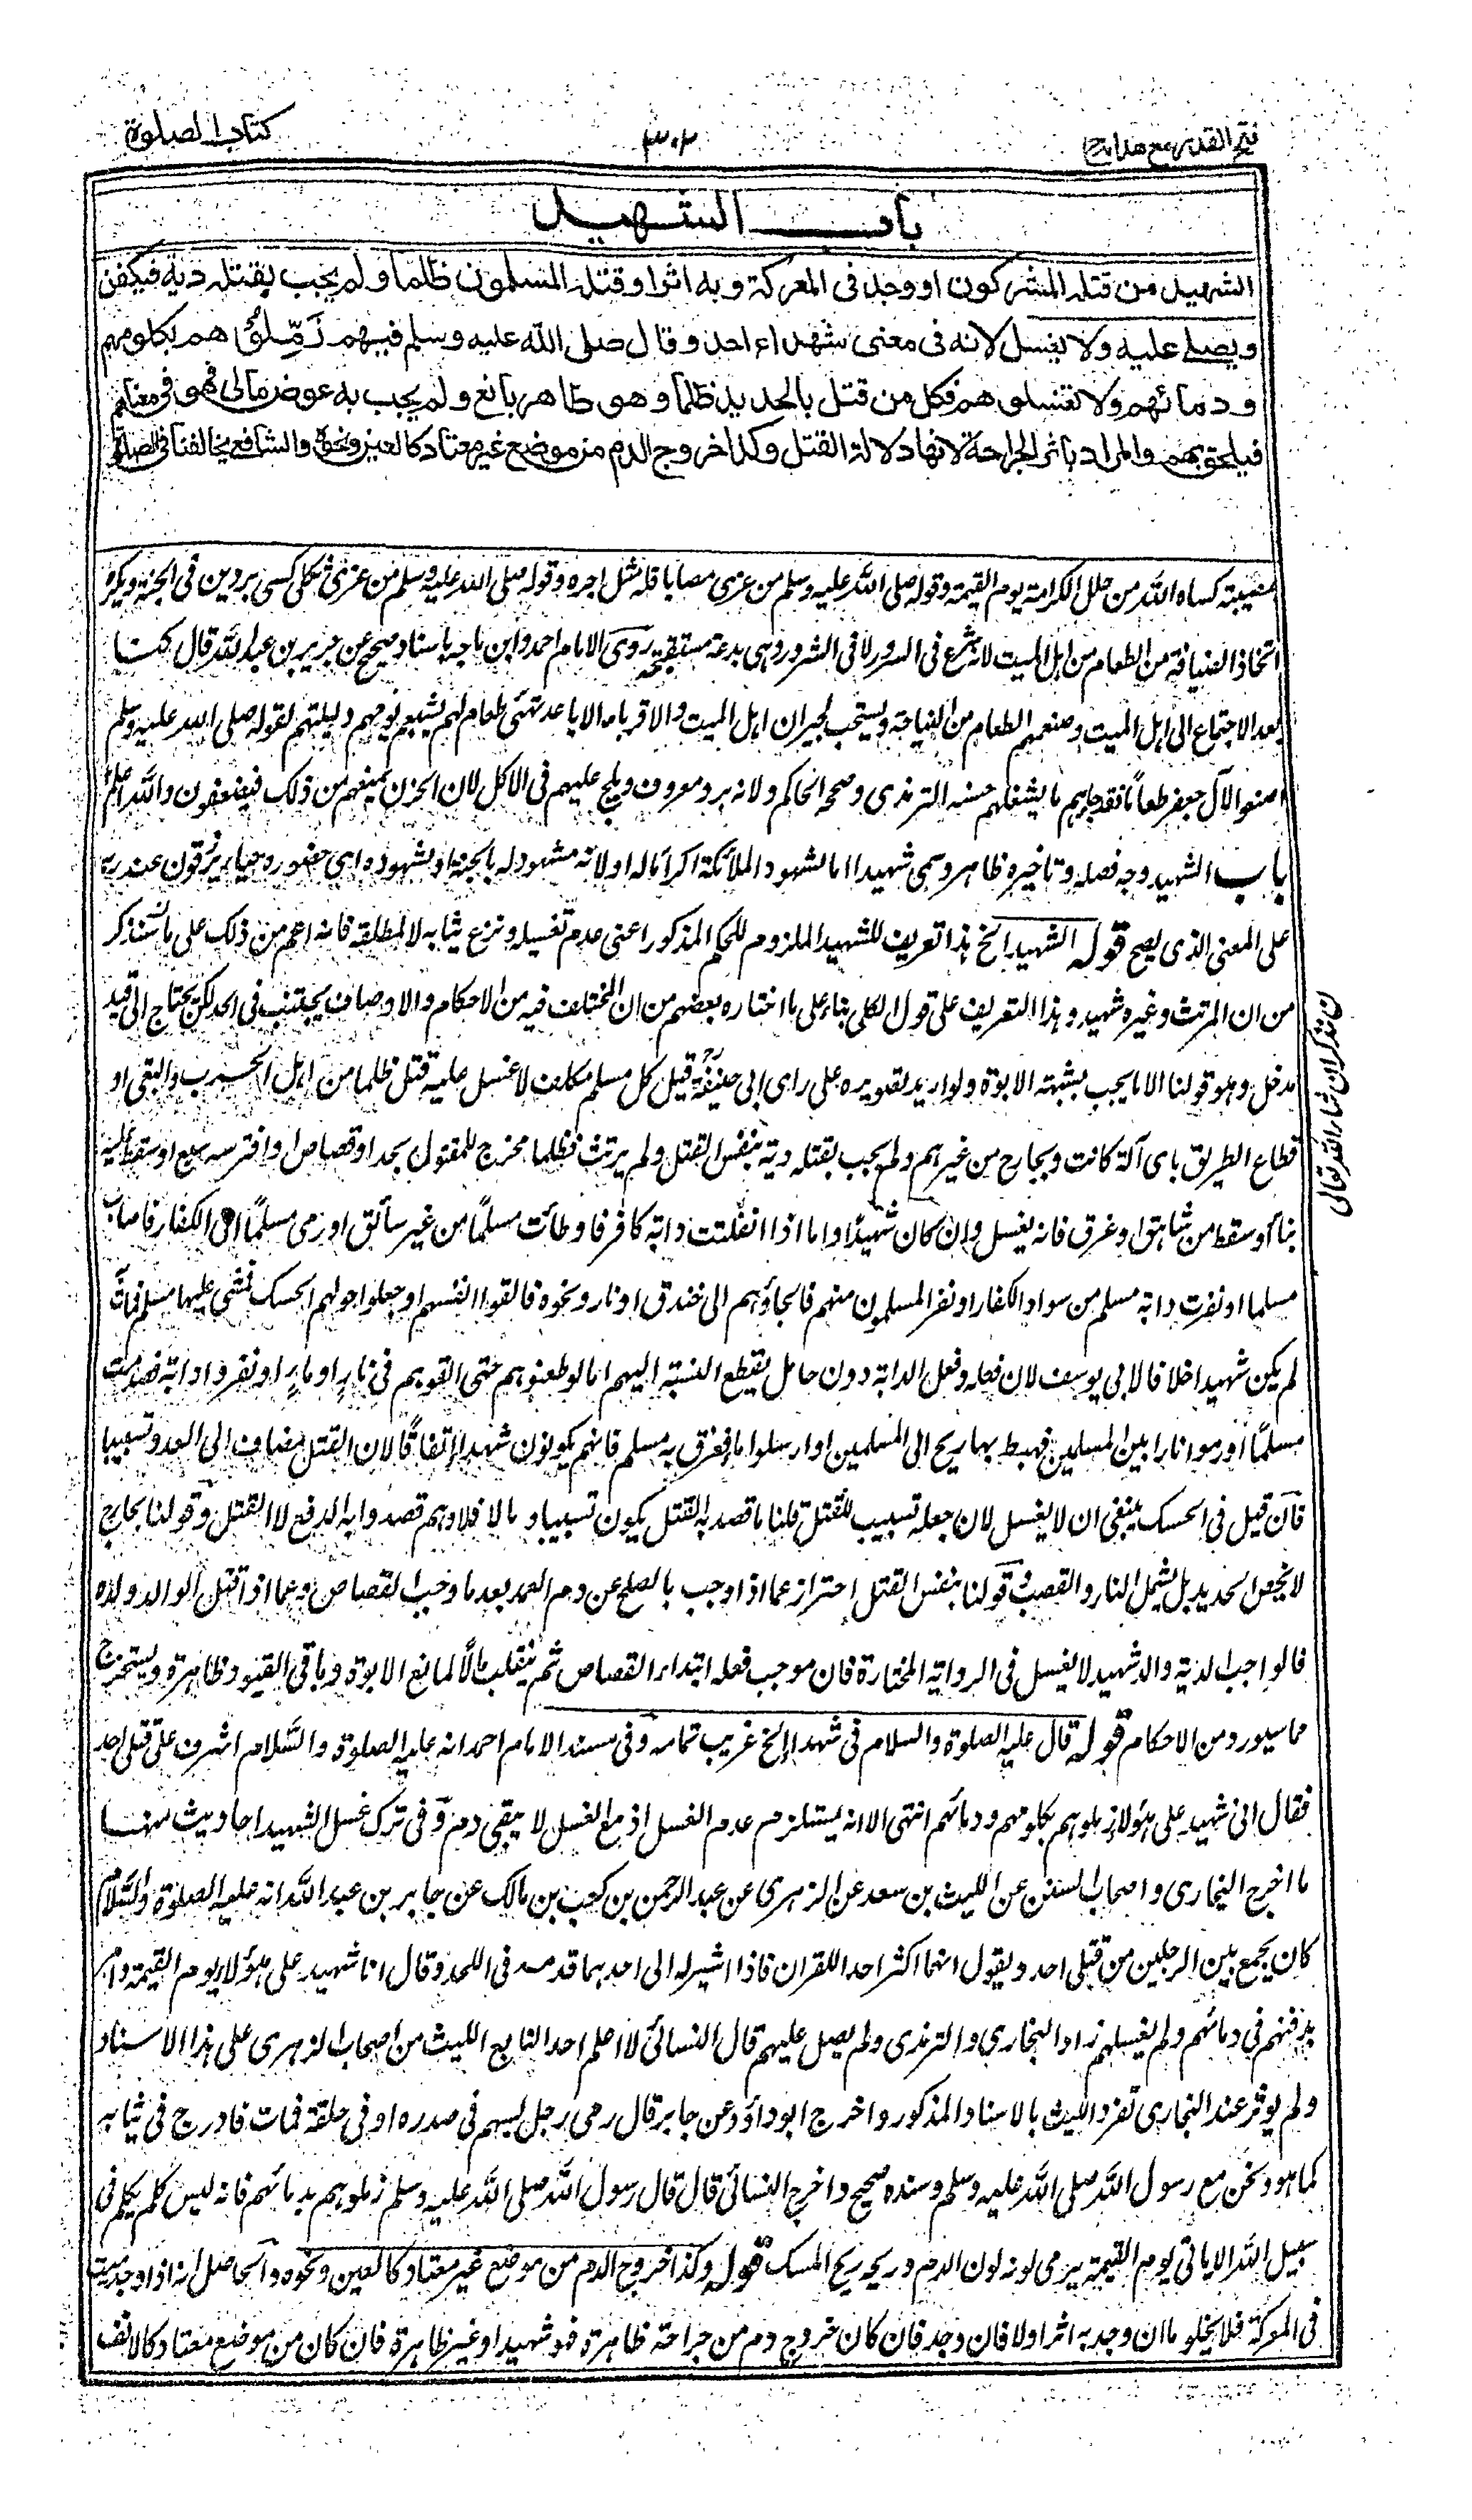 فتح القدير مع هدايه
٣٠٢
كتاب الصلوة
باب الشهيد
الشهيد من قتله المشركون او وجد فى المعركة و به اثر او قتله المسلمون ظلما و لم يجب بقتله دية فيكفن
ويصلے عليه ولا يغسل لانه فى معنى شهداء احد و قال صلى الله عليه وسلم فيهم زَمِّلُوْ هم بكلومهم
و دمائهم ولا تغسلو هم فكل من قتل بالحديد ظلما و هو طاهر بالغ و لم يجب به عوض مالى فهو فى معناهم
فيلحق بهم والمراد باثر الجراحة لانها دلالة القتل وكذا خروج الدم من موضع غير معتاد كالعين ونحوه والشافعے يخالفنا فى الصلوة
مصيبته كساه الله من حلل الكرامة يوم القيمة وقوله صلى الله عليه وسلم من عزى مصابا فله مثل اجره وقوله صلى الله عليه وسلم من عزى ثكلى كسى بردين فى الجنة ويكره
اتخاذ الضيافة من الطعام من اهل الميت لانه شرع فى السرور لا فى الشرور وهى بدعة مستقبحة روى الامام احمد وابن ماجه باسناد صحيح عن جرير بن عبد الله قال كنا
نعد الاجتماع الى اهل الميت وصنعهم الطعام من النياحة ويستحب لجيران اهل الميت والاقرباء الاباعد تهيئى طعام لهم يشبعهم يومهم وليلتهم لقوله صلى الله عليه وسلم
اصنعوا لآل جعفر طعاما فقد جاءهم ما يشغلهم حسنه الترمذى وصححه الحاكم ولانه بر ومعروف ويلح عليهم فى الاكل لان الحزن يمنعهم من ذلك فيضعفون والله اعلم
باب الشهيد وجه فصله وتاخيره ظاهر وسمى شهيدا اما لشهود الملائكة اكراما له او لانه مشهود له بالجنة او لشهوده اى حضوره حيا يرزقون عند ربه
على المعنى الذى يصح قوله الشهيد الخ هذا تعريف للشهيد الملزوم للحكم المذكور اعنى عدم تغسيله ونزع ثيابه لا لمطلقه فانه اعم من ذلك على ما سنذكر
من ان المرتث وغيره شهيد وهذا التعريف على قول الكل بناء على ما اختاره بعضهم من ان المختلف فيه من الاحكام والاوصاف يجتنب فى الحد لكن يحتاج الى قيد
مدخل وهو قولنا الا ما يجب بشبهة الابوة ولو اريد تصويره على راى ابى حنيفة رح قيل كل مسلم مكلف لا غسل عليه قتل ظلما من اهل الحرب والبغى او
قطاع الطريق باى آلة كانت وبجارح من غيرهم ولم يجب بقتله دية بنفس القتل ولم يرتث فظلما مخرج للمقتول بحد او قصاص وافترسه سبع او سقط عليه
بناء او سقط من شاهق او غرق فانه يغسل وان كان شهيدا واما اذا انفلتت دابة كافر فاوطائت مسلما من غير سائق او رمى مسلما الى الكفار فاصاب
مسلما او نفرت دابة مسلم من سواد الكفار او نفر المسلمون منهم فالجاؤهم الى خندق او نار ونحوه فالقوا انفسهم او جعلوا حولهم الحسك فمشى عليها مسلم فمات
لم يكن شهيدا خلافا لابى يوسف لان فعله وفعل الدابة دون حامل يقطع النسبة اليهم اما لو طعنوهم حتى القوهم فى نار او ماء او نفروا دابة فصدمت
مسلما او رموا نارا بين المسلمين فهبط بها ريح الى المسلمين او ارسلوا ماء فغرق به مسلم فانهم يكونون شهداء اتفاقا لان القتل يضاف الى العدو تسبيبا
فان قيل فى الحسك ينبغى ان لا يغسل لان جعله تسبيب للقتل قلنا ما قصد به القتل يكون تسبيبا و ما لا فلا وهم قصدوا به الدفع لا القتل وقولنا بجارح
لا يخص الحديد بل يشمل النار والقصب وقولنا بنفس القتل احتراز عما اذا وجب بالصلح عن دم العمد بعد ما وجب القصاص وعما اذا قتل الوالد ولده
فالواجب الدية والد شهيد لا يغسل فى الرواية المختارة فان موجب فعله ابتداء القصاص ثم ينقلب مالا لمانع الابوة وباقى القيود ظاهرة ويستخرج
مما سيورد من الاحكام قوله قال عليه الصلوة والسلام فى شهداء الخ غريب تمامه وفى مسند الامام احمد انه عليه الصلوة والسلام اشرف على قتلى احد
فقال انى شهيد على هؤلاء زملوهم بكلومهم ودمائهم انتهى الا انه يستلزم عدم الغسل اذ مع الغسل لا يبقى دم وفى ترك غسل الشهيد احاديث منها
ما اخرج البخارى واصحاب السنن عن الليث بن سعد عن الزهرى عن عبد الرحمن بن كعب بن مالك عن جابر بن عبد الله انه عليه الصلوة والسلام
كان يجمع بين الرجلين من قتلى احد ويقول ايهما اكثر اخذا للقران فاذا اشير له الى احدهما قدمه فى اللحد وقال انا شهيد على هؤلاء يوم القيمة وامر
بدفنهم فى دمائهم ولم يغسلهم زاد البخارى والترمذى ولم يصل عليهم قال النسائى لا اعلم احدا تابع الليث من اصحاب الزهرى على هذا الاسناد
ولم يؤثر عند البخارى تفرد الليث بالاسناد المذكور واخرج ابو داؤد عن جابر قال رمى رجل بسهم فى صدره او فى حلقه فمات فادرج فى ثيابه
كما هو ونحن مع رسول الله صلى الله عليه وسلم وسنده صحيح واخرج النسائى قال قال رسول الله صلى الله عليه وسلم زملوهم بدمائهم فانه ليس كلم يكلم فى
سبيل الله الا ياتى يوم القيمة يدمى لونه لون الدم وريحه ريح المسك قوله وكذا خروج الدم من موضع غير معتاد كالعين ونحوه والحاصل انه اذا وجد ميت
فى المعركة فلا يخلو ما ان وجد به اثر اولا فان وجد فان كان خروج دم من جراحة ظاهرة فهو شهيد او غير ظاهرة فان كان من موضع معتاد كالانف
ان شاء الله تعالى